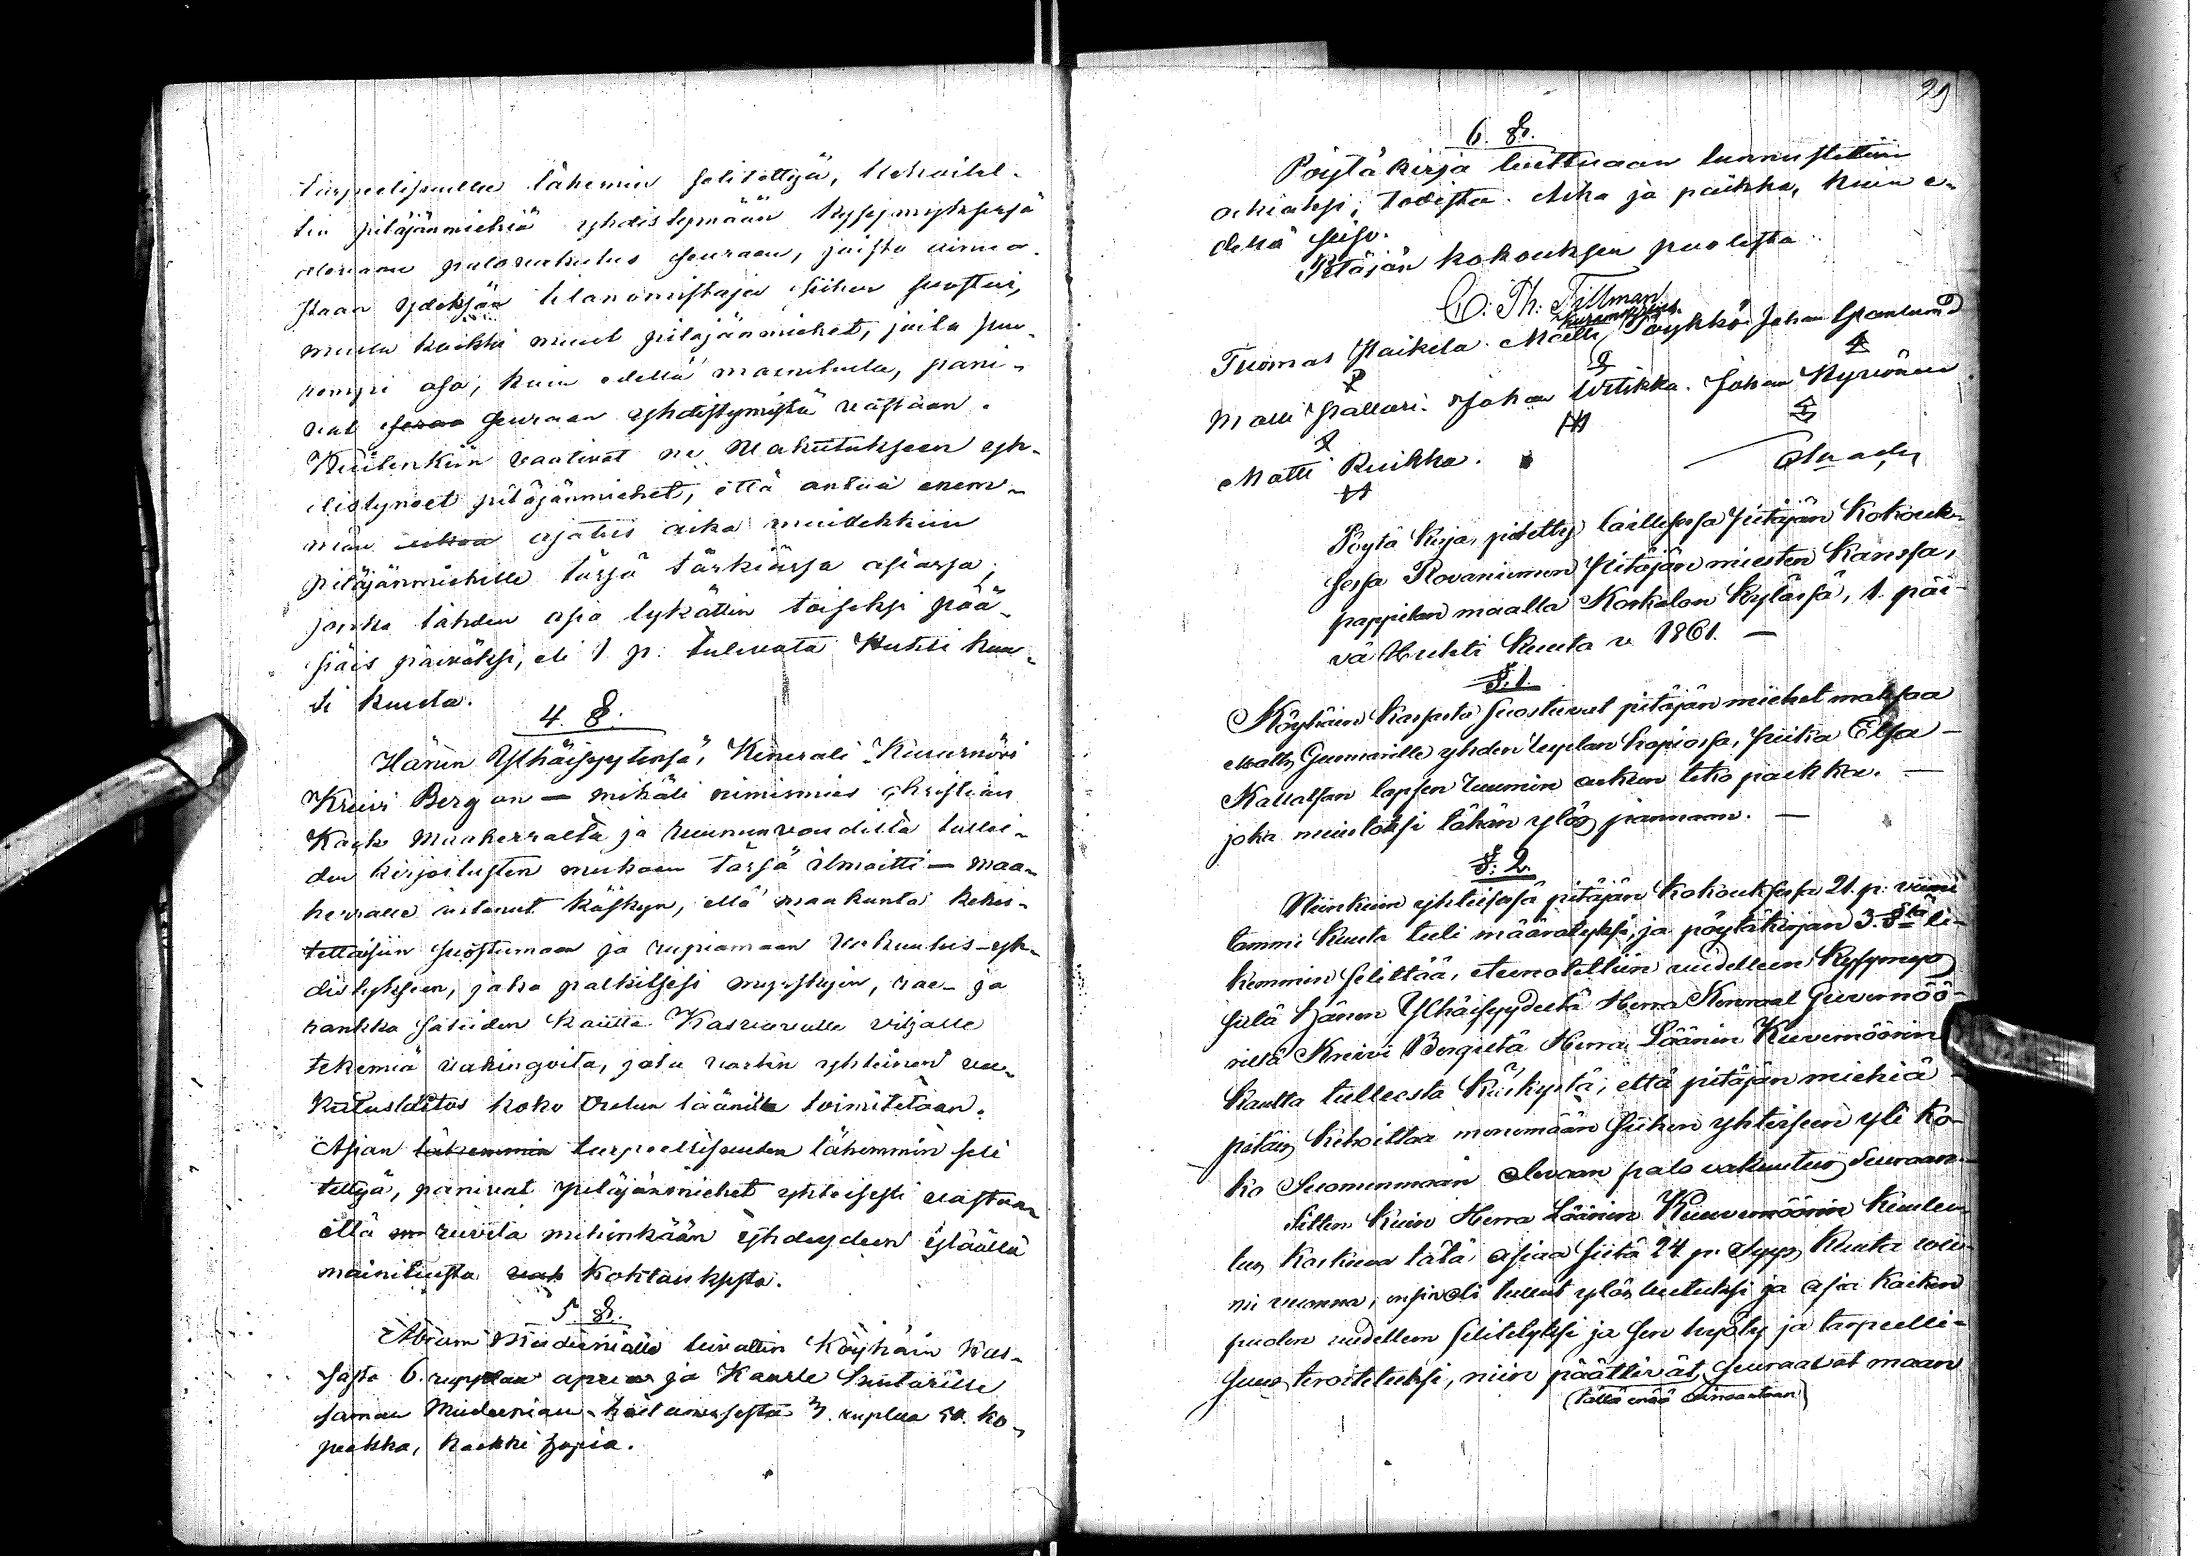 tarpeelisuuden lähemin selitettyä, kehoitet-
tin pitäjänmiehiä yhdistymään kysymyksessä
olevaan palovakutus seuraan, joista ainoa
staan ydeksän talanomistajaa siihen suostui,
mutta kaikki muut pitäjänmiehet, joita suu
rempi osa, kuin edellä mainituita, pani-
vat seuraan yhdistymistä vastaan.
Kuitenkin vaativat ne vakutukseen yh-
distyneet pitäjänmiehet, että antaa enem-
män aikaa ajatus aika muillekkin
pitäjänmiehille tässä tärkiässä asiassa,
jonka tähden asia lykättin toiseksi pää-
siäis päiväksi, eli 1 p. tulevata Huhti kuu-
ti kuuta.
4. §.
Hänen Ylhäisyytensä, Kenerali Kuvernöri
Kreivi Berg on — mikäli nimismies Christian
Kack maaherralta ja ruununvoudilta tullei-
den kirjoitusten mukaan tässä ilmoitti — maa-
herralle antanut käskyn, että maakunta kehoi-
tettaisiin suostumaan ja rupiamaan vakuutus-yh-
distykseen, joka palkitsisi myrskyin, rae- ja
rankka sateiden kautta kasvavalle viljalle
tekemiä vahingoita, jota varten yhteinen va-
kutuslaitos koko Oulun läänille toimitetaan.
Asian tähemmin tarpeellisuuden lähemmin seli
tettyä, panivat pitäjänmiehet yhteisesti vastaan
että ruveta mihinkään yhdeyteen ylläällä
mainitusta kohtauksesta.
5 §.
Abram Muderialle luvattin Köyhäin kas-
sasta 6. ruplan apua ja Kaarle Suutarille
saman Muderian hoitamisesta 3. ruplaa 50. ko-
peekka, kaikki hopia.
29
6. §.
Pöytäkirja luettuaan tunnustettiin
oikiaksi, todista. Aika ja paikka, kuin e-
dellä seiso.
Pitäjän kokouksen puolesta
C. Th. Tillman
Tuomas Paikela. Matti Töykkö. Johan Granlund
Matti Pallari. Johan Utikka. Johan Kyrönen
Matti Ruikka.
Pöytä kirja, pidetty laillisessa Pitäjän kokouk-
sessa Rovaniemen Pitäjän miesten kanssa,
pappilan maalla Korkalon kylässä, 1. päi-
vä Huhti kuuta v. 1861. —
§. 1.
Köyhäin kassasta suostuvat pitäjän miehet maksaa
Matts Gunnarille yhden ruplan hopiassa, piika Elsa —
Kallatsan lapsen ruumin aukun teko paikka. —
joka muistoksi tähän ylös pannaan. —
§: 2.
Niinkuin yhteisessä pitäjän kokouksessa 21. p. viimi
tammi kuuta tuli määrätyksi, ja pöytäkirjan 3. §stä li-
hemmin selittää, etunotettiin uudelleen kysymys
siitä Hänen Ylhäisyydeltä Herra Kenraal Guvernöö-
riltä Kreivi Bergiltä Herra Läänin Kuvernöörin
kautta tulleesta käskystä, että pitäjän miehiä —
pitäis kehoittaa menemään siihen yhteiseen yli ko-
ko Suomenmaan olevaan palo vakuutus Seuraan.—
Sitten kuin Herra Läänin Kuuvernöörin kuulu
tus koskeva tätä asiaa siitä 24 p. Syys kuuta viii-
mi vuonna, ensin oli tullut ylös luetuksi ja asia kaiken
puolin uudelleen selitetyksi ja sen hyöty ja tarpeelli-
suus teroitetuksi, niin päättivät, seuraavat maan
(tällä erää ainoastaan)